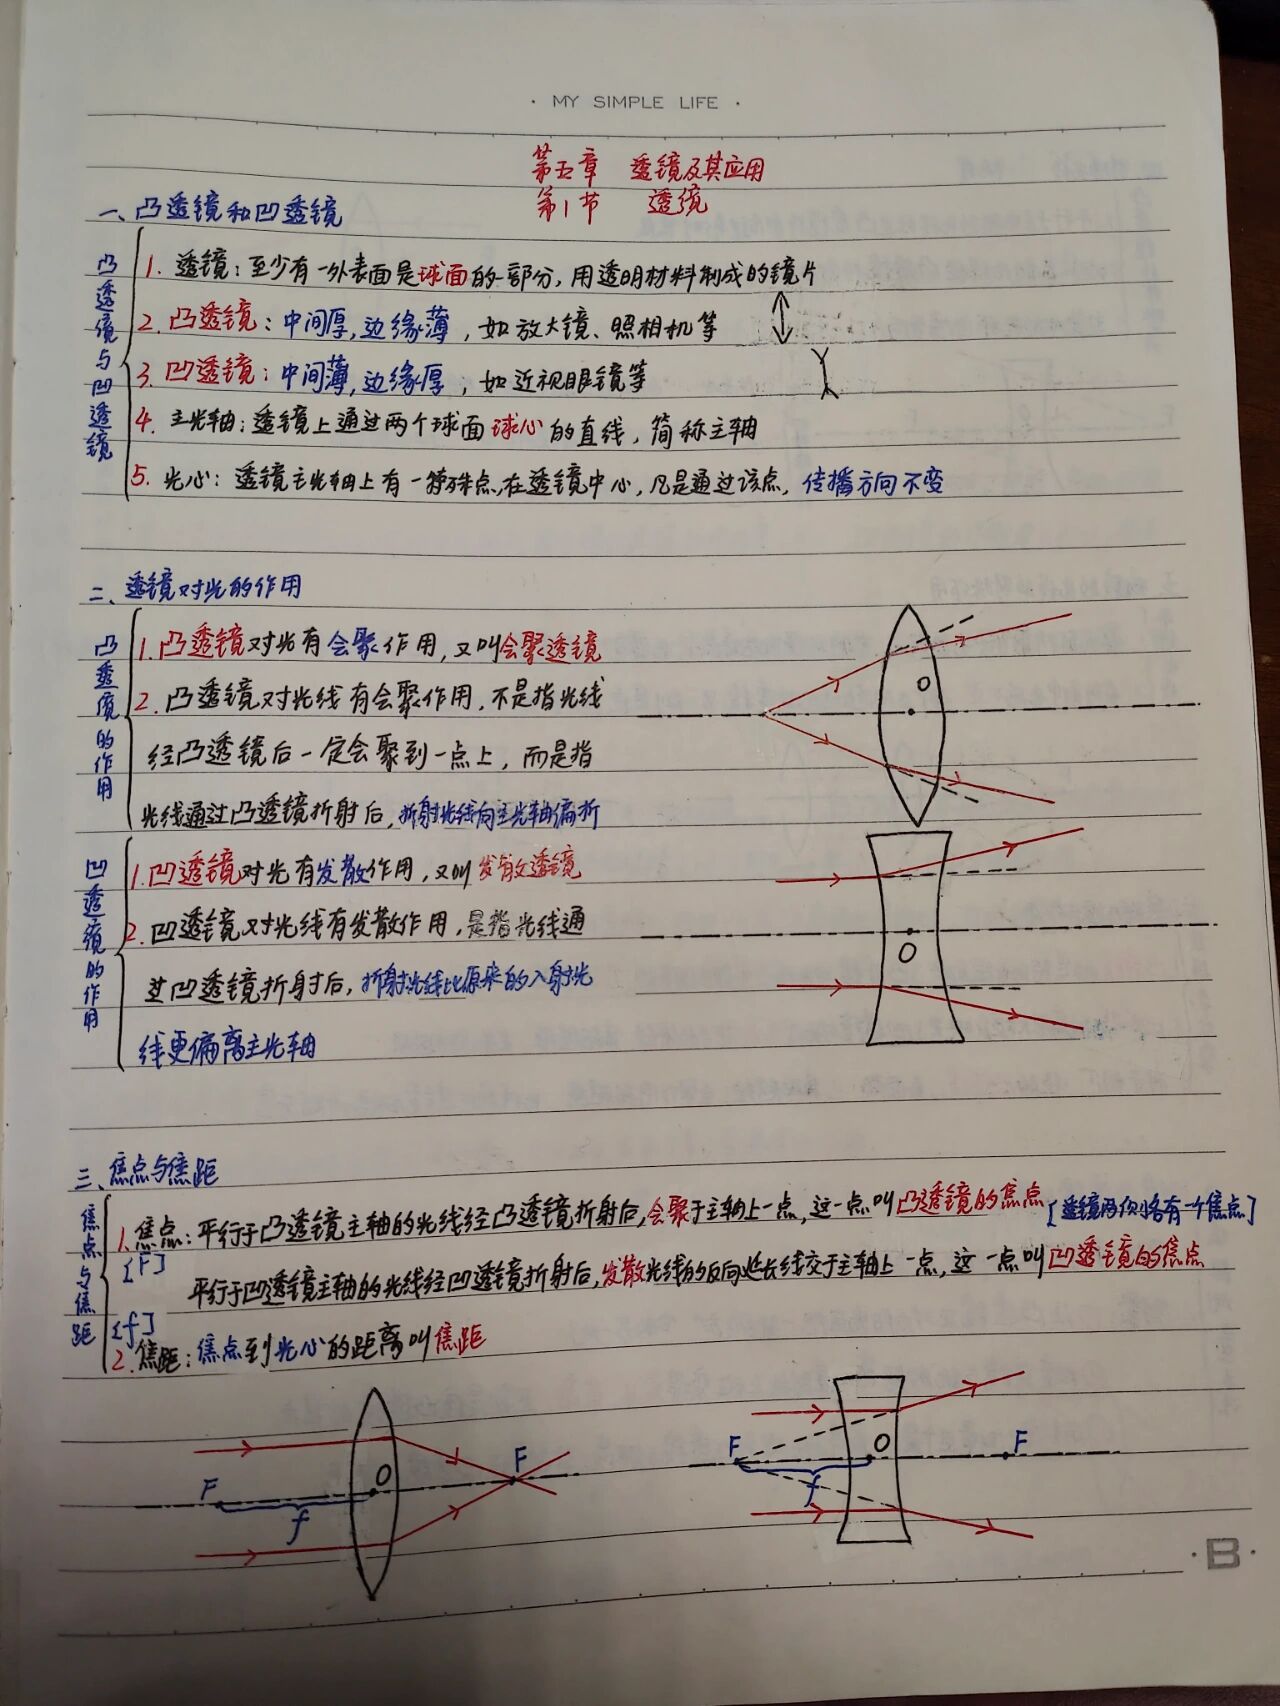 · MY SIMPLE LIFE ·
第五章 透镜及其应用
第1节 透镜
一、凸透镜和凹透镜
凸透镜与凹透镜
1. 透镜：至少有一外表面是球面的一部分，用透明材料制成的镜片
2. 凸透镜：中间厚，边缘薄，如放大镜、照相机等
3. 凹透镜：中间薄，边缘厚，如近视眼镜等
4. 主光轴：透镜上通过两个球面球心的直线，简称主轴
5. 光心：透镜主光轴上有一特殊点，在透镜中心，凡是通过该点，传播方向不变
二、透镜对光的作用
凸透镜的作用
1. 凸透镜对光有会聚作用，又叫会聚透镜
2. 凸透镜对光线有会聚作用，不是指光线
经凸透镜后一定会聚到一点上，而是指
光线通过凸透镜折射后，折射光线向主光轴偏折
O
凹透镜的作用
1. 凹透镜对光有发散作用，又叫发散透镜
2. 凹透镜对光线有发散作用，是指光线通
过凹透镜折射后，折射光线比原来的入射光
线更偏离主光轴
O
三、焦点与焦距
焦点与焦距
1. 焦点：平行于凸透镜主轴的光线经凸透镜折射后，会聚于主轴上一点，这一点叫凸透镜的焦点[透镜两侧各有一个焦点]
[F]
平行于凹透镜主轴的光线经凹透镜折射后，发散光线的反向延长线交于主轴上一点，这一点叫凹透镜的焦点
[f]
2. 焦距：焦点到光心的距离叫焦距
F O F
f
F O F
f
·B·